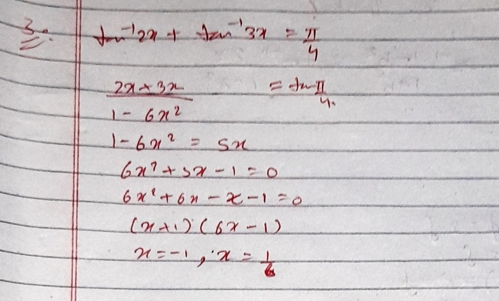 3. tan⁻¹2x + tan⁻¹3x = π/4
(2x+3x)/(1 - 6x²) = tan π/4.
1 - 6x² = 5x
6x² + 5x - 1 = 0
6x² + 6x - x - 1 = 0
(x+1) (6x - 1)
x = -1, x = 1/6